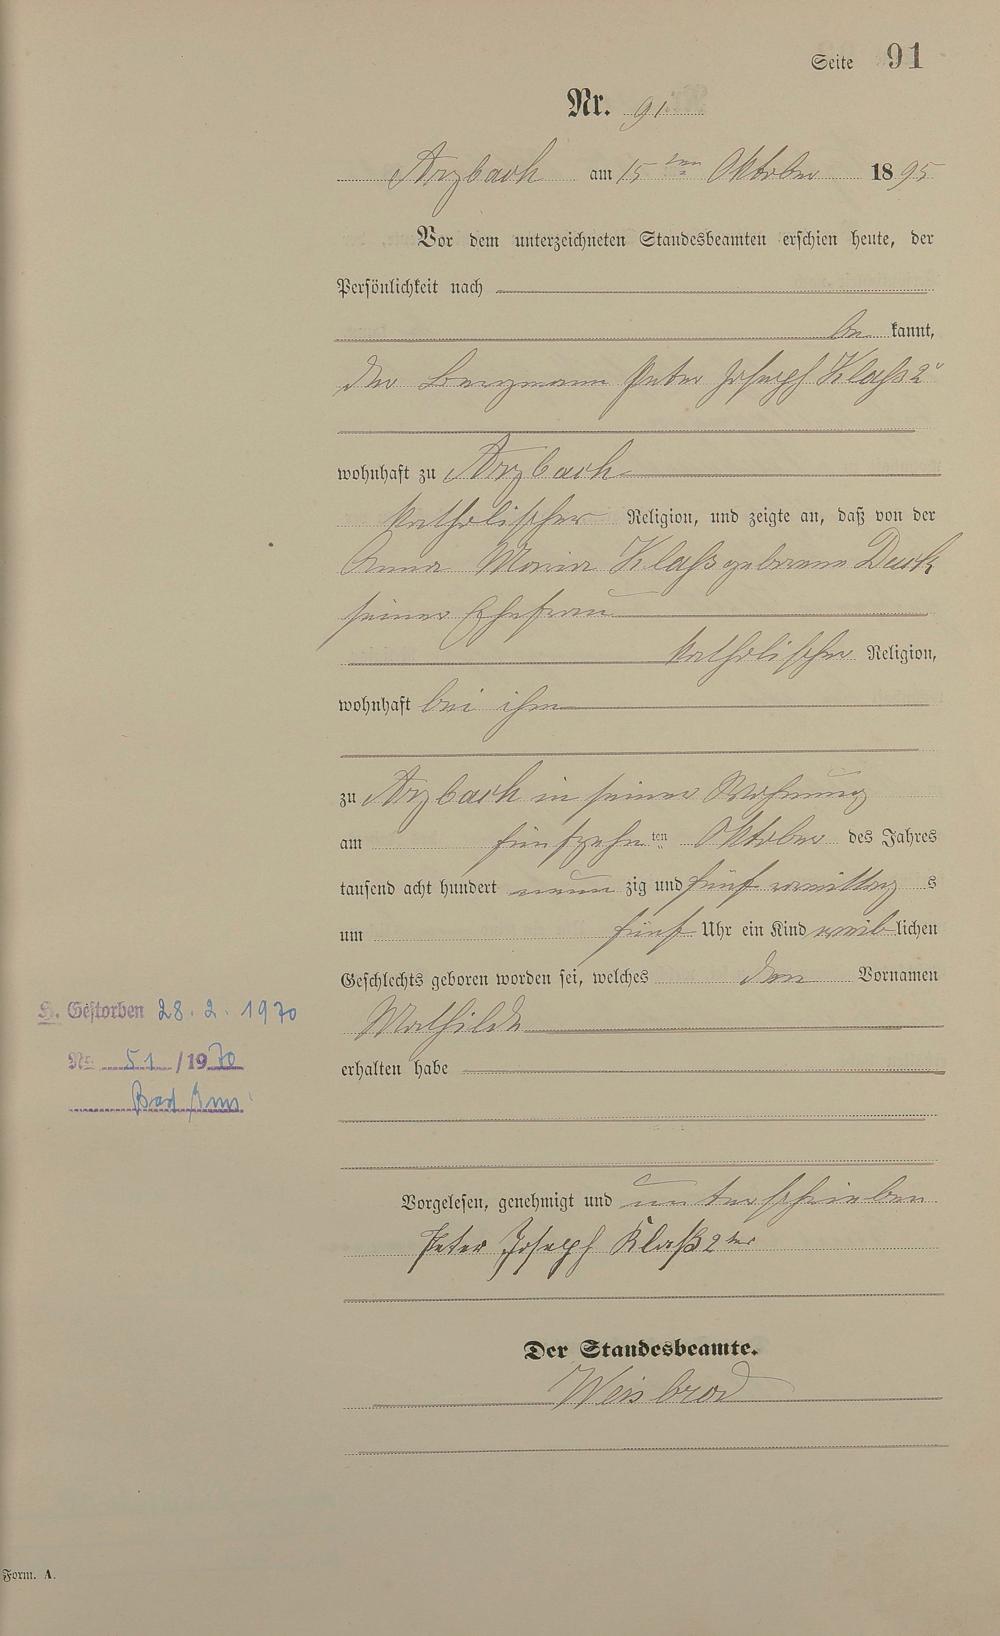 Seite 91
Nr. 91.
Arzbach am 15ten Oktober 1895
Vor dem unterzeichneten Standesbeamten erschien heute, der
Persönlichkeit nach
be kannt,
der Bergmann Peter Joseph Klaß 2r
wohnhaft zu Arzbach
katholischer Religion, und zeigte an, daß von der
Anna Maria Klaß geborene
seiner Ehefrau
katholischer Religion,
wohnhaft bei ihm
zu Arzbach in seiner Wohnung
am fünfzehnten Oktober des Jahres
tausend acht hundert neun zig und fünf vormittag s
um fünf Uhr ein Kind weiblichen
Geschlechts geboren worden sei, welches den Vornamen
Mathilde
erhalten habe
H. Gestorben 28. 2. 1970
Nr. 51 / 1970
Bad Ems
Vorgelesen, genehmigt und unterschrieben
Peter Joseph Klaß 2ter
Der Standesbeamte.
Weisbrod
Form. A.